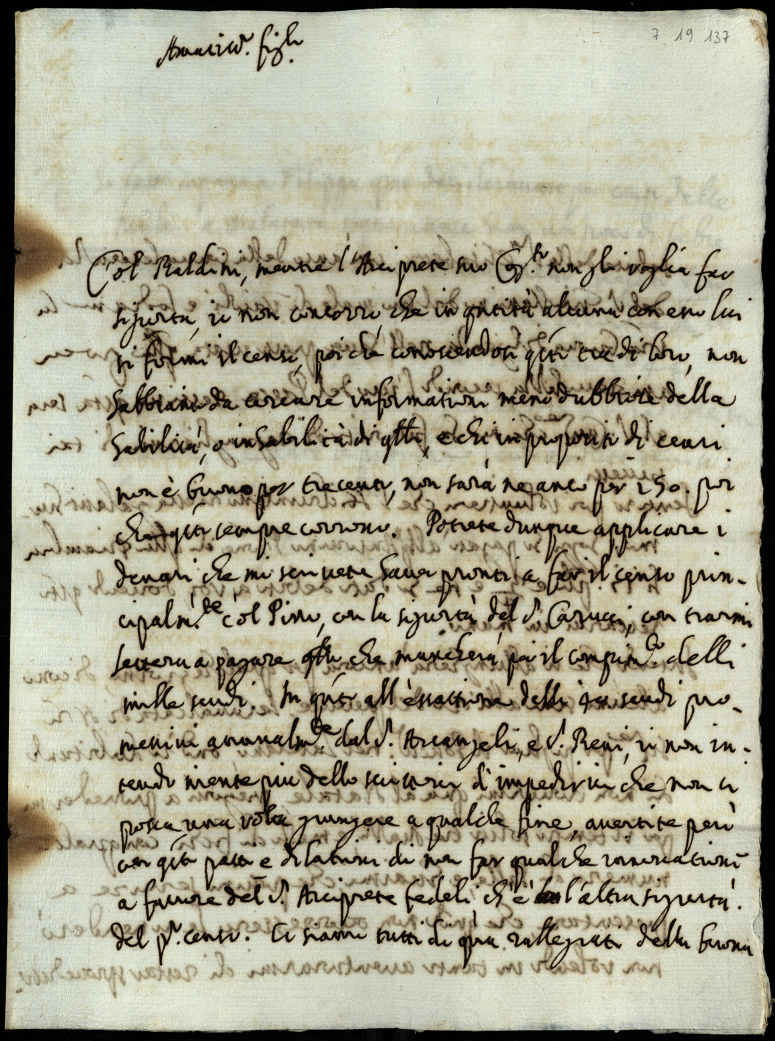 7 19 137
figlio
Col Baldini, mentre l'Arciprete suo non gli voglia far
sigurtà, io non concorro, che in q.ntità alcuna con esso lui
si formi il censo, poi che conoscendosi q.sti tre di loro, non
habbiamo da cercare informationi meno dubbiose della
habilità, o inhabilità di q.lli, e chi in proposito di censi
non è buono per trecento, non sarà ne anco per 150. poi
che q.sti sempre corrono. Potrete dunque applicare i
denari che mi scrivete haver pronti a far il censo prin-
cipalm.te col Pirro, con la sigurtà del S. Carucci, con trarmi
lettera a pagare q.llo che mancherà per il compim.to delli
mille scudi. In q.sto all'essattione delli scudi pro-
messivi annualm.te dal S. Arcangeli, e S. Reni, io non in-
tendo mente più dello scrittovi d'impedirvi che non si
possa una volta giungere a qualche fine, avertite però
con q.sti patti e dilationi di non far qualche innovatione
a favore del S. Arciprete Fedeli ch'è l'altra sigurtà.
del p.o censo. Ci siamo tutti di quà rallegrati della buona